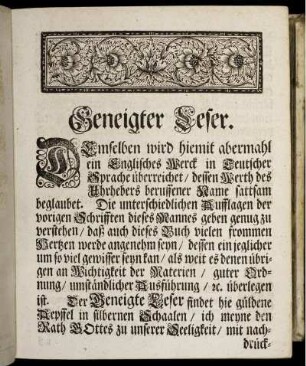 Geneigter Leser.
DEmselben wird hiemit abermahl
ein Englisches Werck in Teutscher
Sprache überreichet / dessen Werth des
Uhrhebers beruffener Name sattsam
beglaubet. Die unterschiedlichen Aufflagen der
vorigen Schrifften dieses Mannes geben genug zu
verstehen / daß auch dieses Buch vielen frommen
Hertzen werde angenehm seyn / dessen ein jeglicher
um so viel gewisser seyn kan / als weit es denen übri-
gen an Wichtigkeit der Materien / guter Ord-
nung / umständlicher Ausführung / ꝛc. überlegen
ist. Der Geneigte Leser findet hie güldene
Aepffel in silbernen Schaalen / ich meyne den
Rath GOttes zu unserer Seeligkeit / mit nach-
drück-